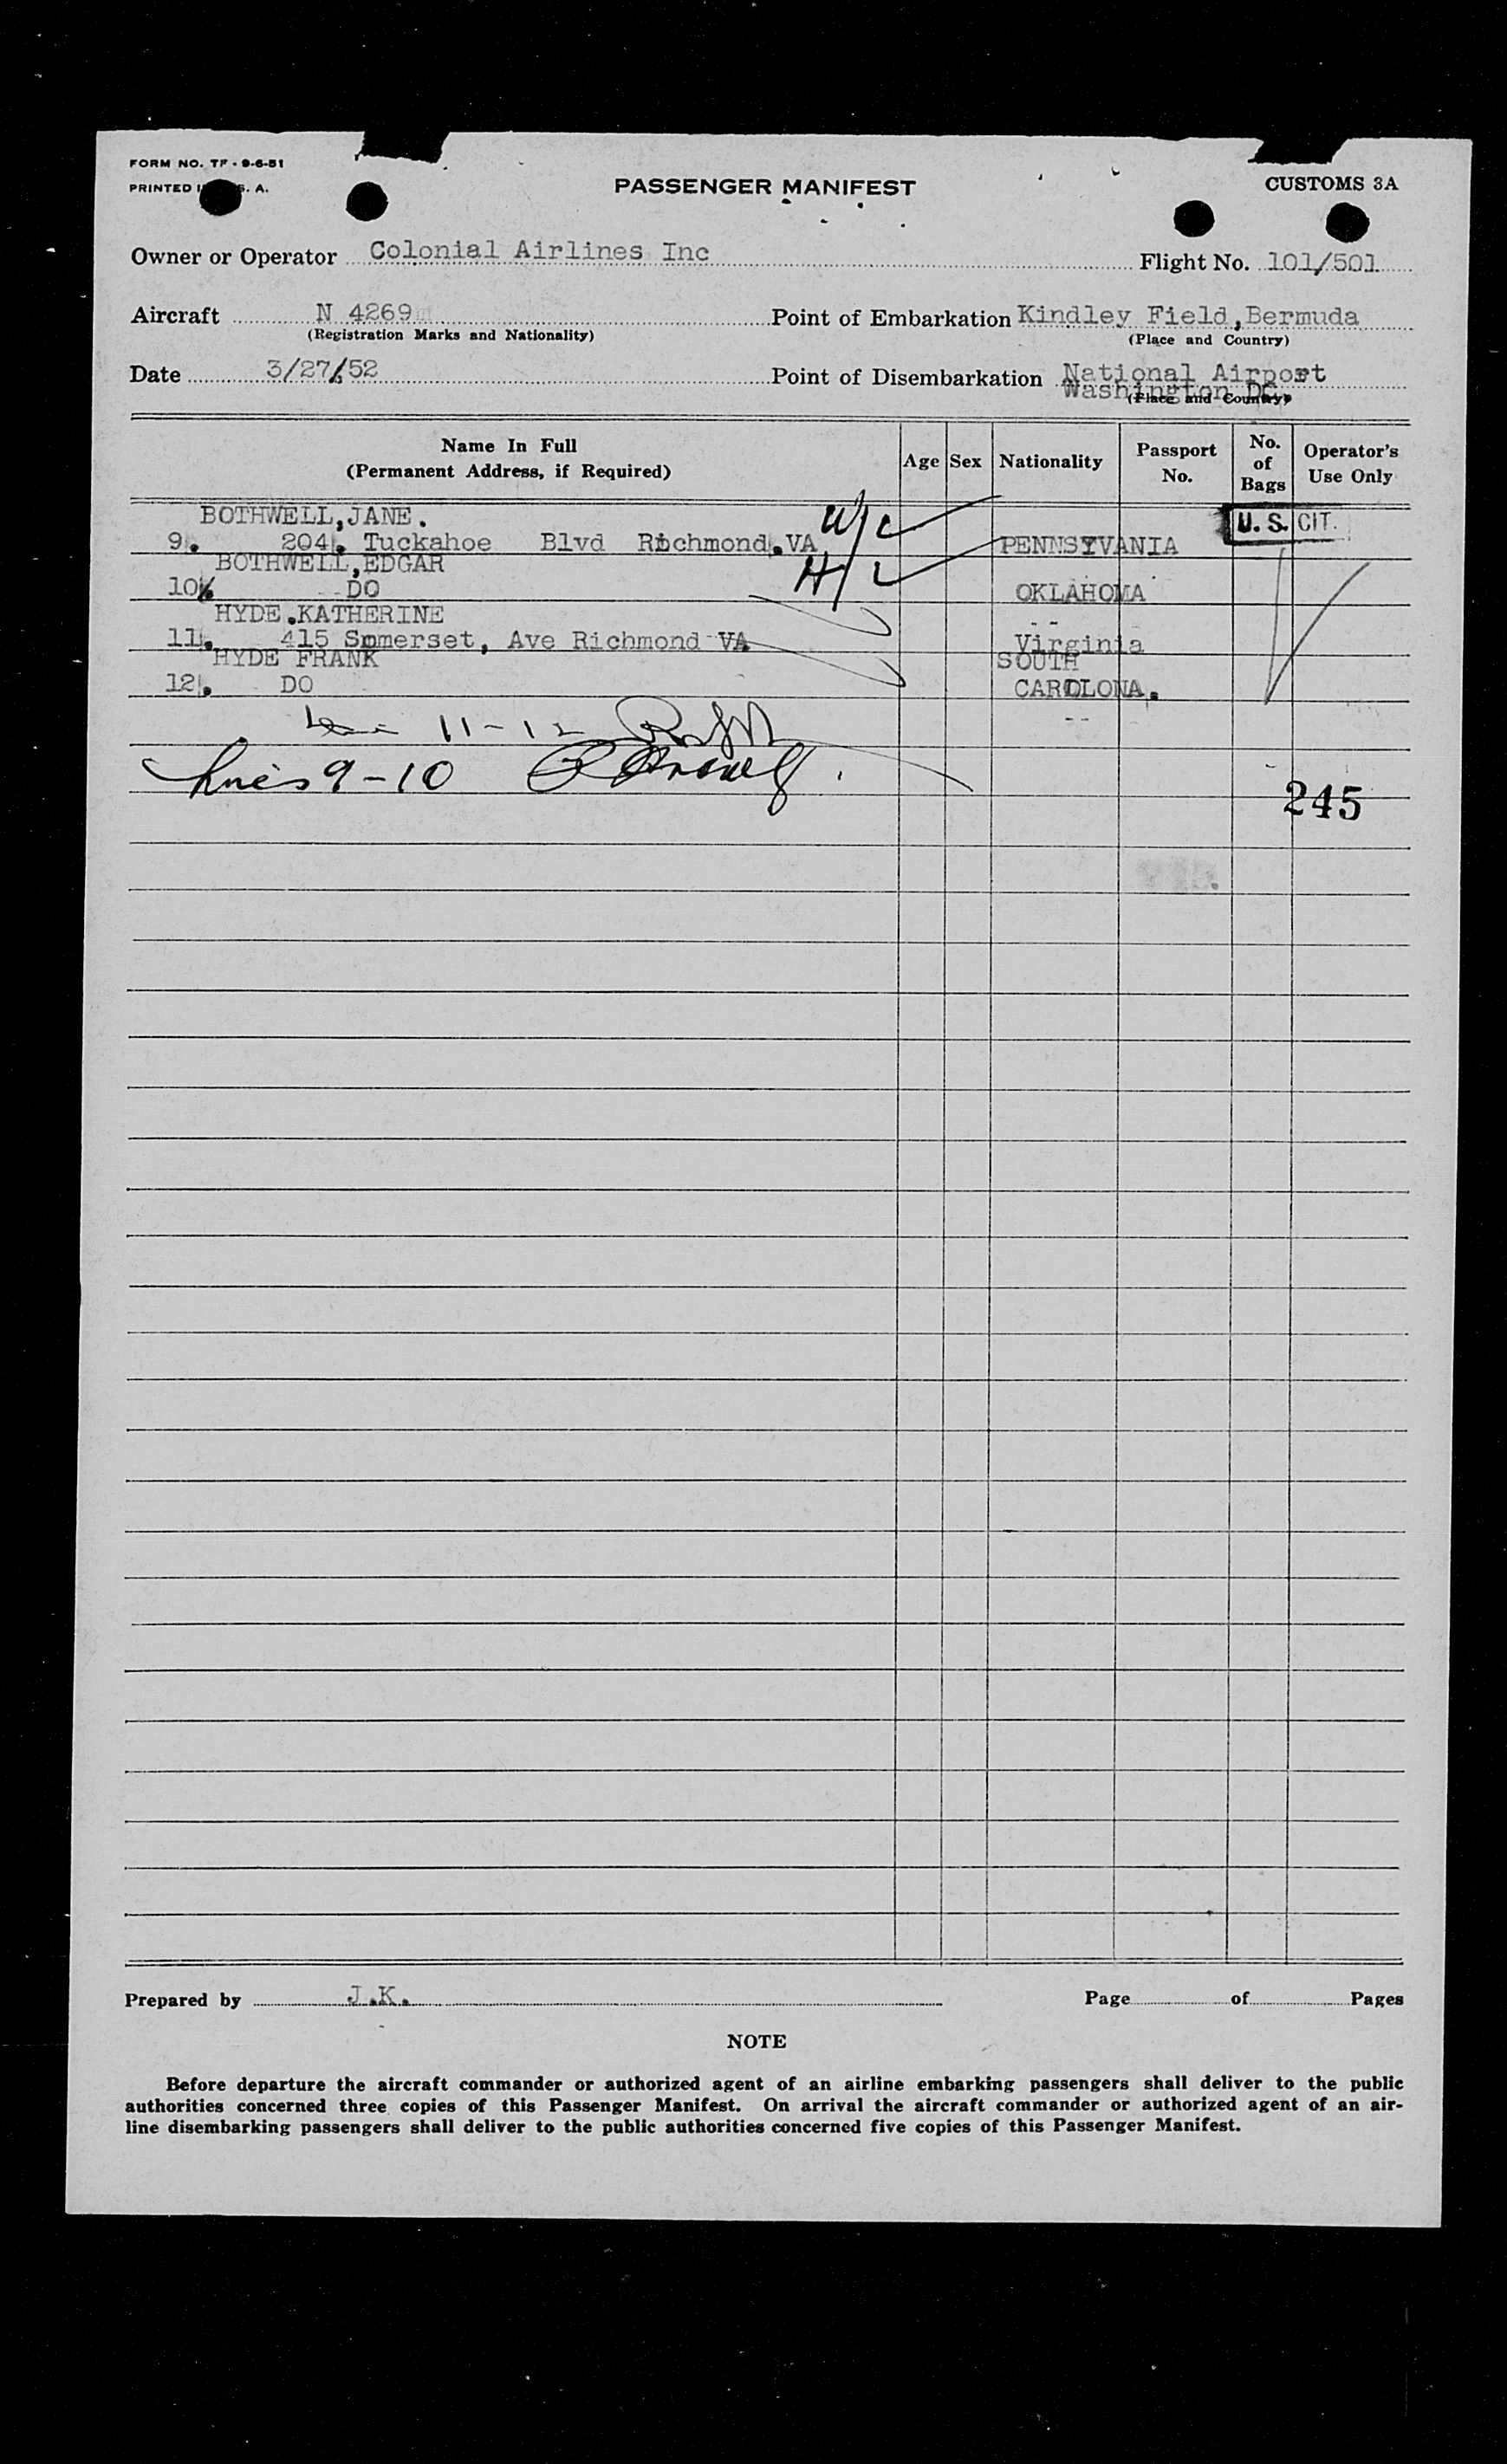 FORM NO. TF - 9-6-51
PRINTED I S. A.
PASSENGER MANIFEST
CUSTOMS 3A
Owner or Operator Colonial Airlines Inc Flight No. 101/501
Aircraft N 4269 Point of Embarkation Kindley Field, Bermuda
(Registration Marks and Nationality) (Place and Country)
Date 3/27/52 Point of Disembarkation National Airport
Washington DC.
(Place and Country)
Name In Full
(Permanent Address, if Required) Age Sex Nationality Passport No. No. of Bags Operator's Use Only
BOTHWELL, JANE. W/C U. S. CIT.
9. 204. Tuckahoe Blvd Richmond. VA PENNSYVANIA
BOTHWELL, EDGAR H/
10. DO OKLAHOMA
HYDE. KATHERINE --
11. 415 Somerset, Ave Richmond VA Virginia
HYDE FRANK SOUTH
12. DO CAROLONA.
11-12 --
9-10
245
Prepared by J.K. Page of Pages
NOTE
Before departure the aircraft commander or authorized agent of an airline embarking passengers shall deliver to the public
authorities concerned three copies of this Passenger Manifest. On arrival the aircraft commander or authorized agent of an air-
line disembarking passengers shall deliver to the public authorities concerned five copies of this Passenger Manifest.